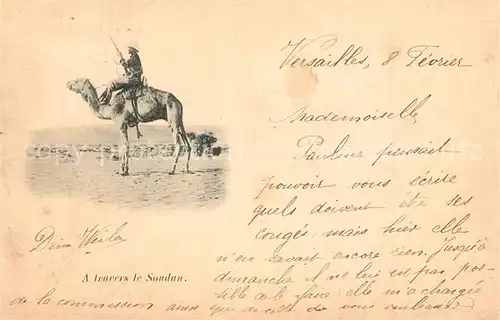 Versailles, 8 Février
Mademoiselle,
Pauline pensait
pouvoir vous écrire
quels doivent être ses
congés; mais hier elle
n'en savait encore rien. Jusqu'à
dimanche il ne lui est pas pos-
sible de le faire: elle m'a chargée
de la commission ainsi que de celle de vous embrasser
A travers le Soudan.